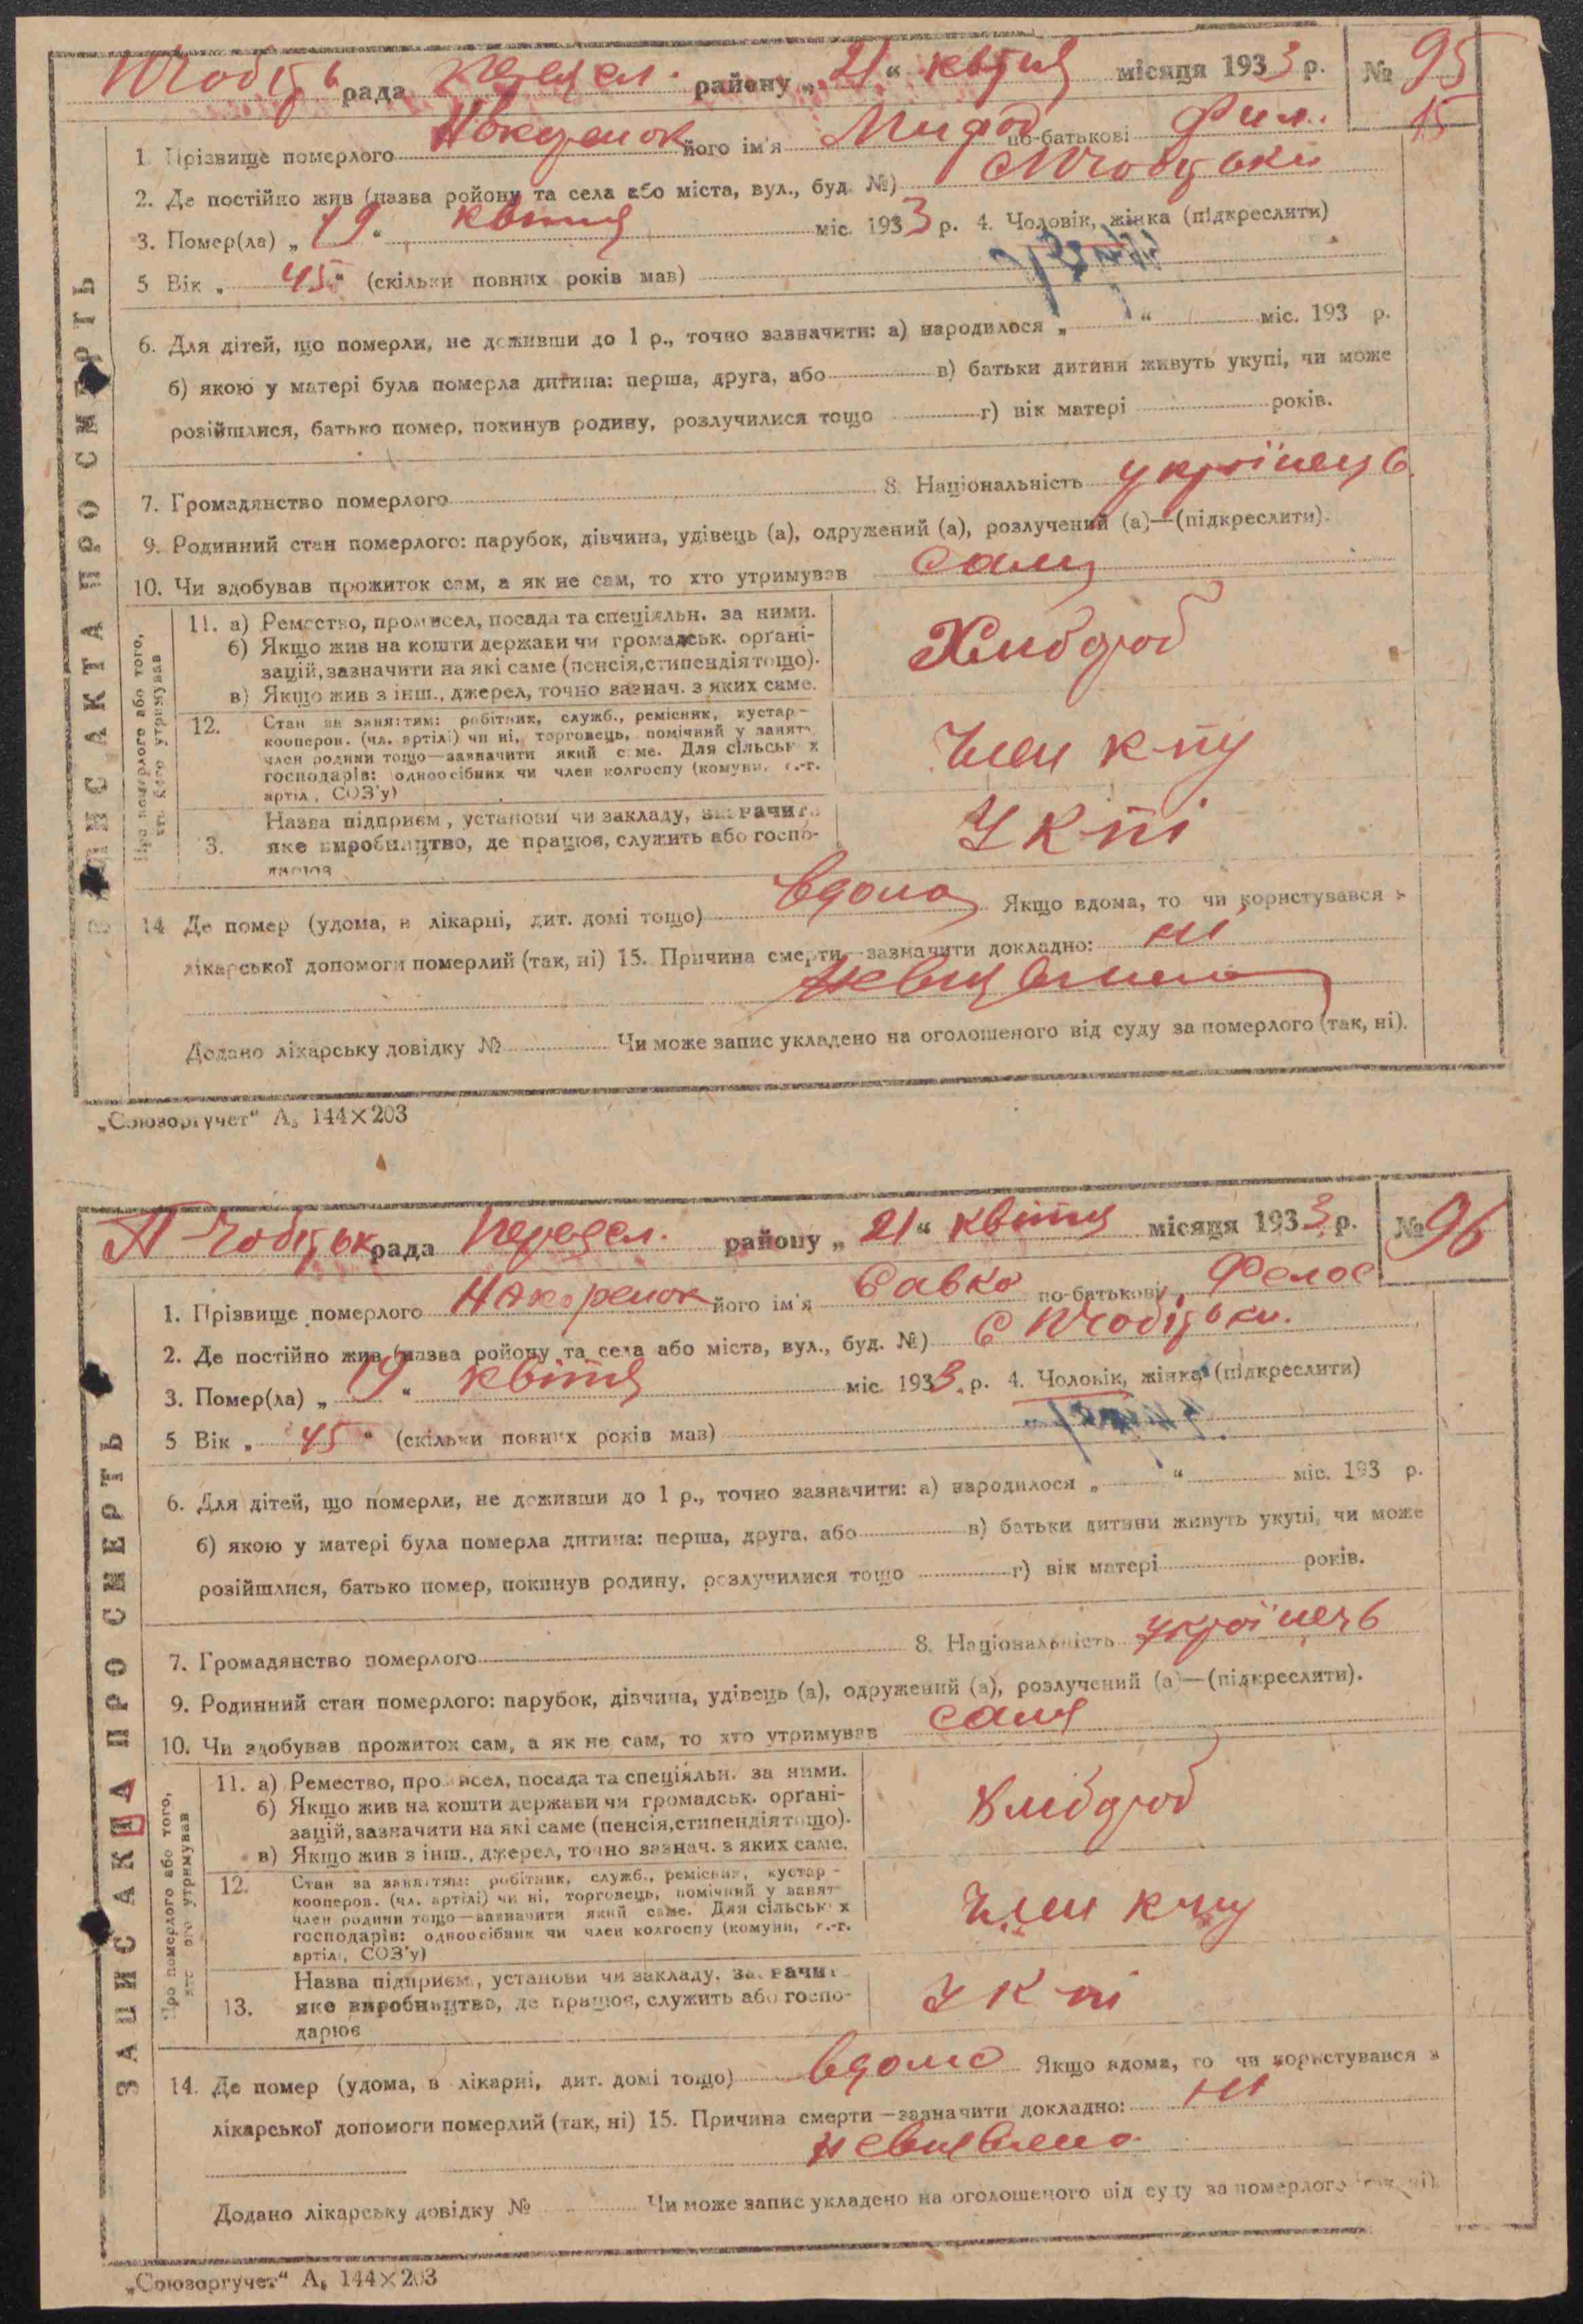 рада району „21“ квітня місяця 1933 р. № 95
15
1. Прізвище померлого його ім'я по-батькові Фил.
2. Де постійно жив (назва ройону та села або міста, вул., буд. №)
3. Помер(ла) „19“ квітня міс. 1933 р. 4. Чоловік, жінка (підкреслити)
5 Вік „45“ (скільки повних років мав)
6. Для дітей, що померли, не доживши до 1 р., точно зазначити: а) народилося „ “ міс. 193 р.
б) якою у матері була померла дитина: перша, друга, або в) батьки дитини живуть укупі, чи може
розійшлися, батько помер, покинув родину, розлучилися тощо г) вік матері років.
7. Громадянство померлого 8. Національність українець
9. Родинний стан померлого: парубок, дівчина, удівець (а), одружений (а), розлучений (а)—(підкреслити).
10. Чи здобував прожиток сам, а як не сам, то хто утримував сам
ЗАПИС АКТА ПРО СМЕРТЬ
Про померлого або того, хто його утримував
11. а) Ремество, промисел, посада та спеціяльн. за ними.
б) Якщо жив на кошти держави чи громадськ. органі-
зацій, зазначити на які саме (пенсія, стипендія тощо).
в) Якщо жив з інш., джерел, точно зазнач. з яких саме.
Хлибороб
12. Стан за заняттям: робітник, служб., ремісник, кустар-
кооперов. (чл. артілі) чи ні, торговець, помічний у занят-
член родини тощо—зазначити який саме. Для сільськ х
господарів: одноосібник чи член колгоспу (комуни, с.-г.
артіл, СОЗ'у)
Член
3. Назва підприєм, установи чи закладу, зазначит
яке виробництво, де працює, служить або госпо-
дарює
14 Де помер (удома, в лікарні, дит. домі тощо) вдома Якщо вдома, то чи користувався з
лікарської допомоги померлий (так, ні) 15. Причина смерти—зазначити докладно: ні
невиявлено
Додано лікарську довідку № Чи може запис укладено на оголошеного від суду за померлого (так, ні).
„Союзоргучет“ А₅ 144×203
рада району „21“ квітня місяця 1933 р. № 96
1. Прізвище померлого його ім'я Савка по-батькові
2. Де постійно жив (назва ройону та села або міста, вул., буд. №)
3. Помер(ла) „19“ квітня міс. 1933 р. 4. Чоловік, жінка (підкреслити)
5 Вік „45“ (скільки повних років мав)
6. Для дітей, що померли, не доживши до 1 р., точно зазначити: а) народилося „ “ міс. 193 р.
б) якою у матері була померла дитина: перша, друга, або в) батьки дитини живуть укупі, чи може
розійшлися, батько помер, покинув родину, розлучилися тощо г) вік матері років.
7. Громадянство померлого 8. Національність українець
9. Родинний стан померлого: парубок, дівчина, удівець (а), одружений (а), розлучений (а)—(підкреслити).
10. Чи здобував прожиток сам, а як не сам, то хто утримував сам
ЗАПИС АКТА ПРО СМЕРТЬ
Про померлого або того, хто його утримував
11. а) Ремество, промисел, посада та спеціяльн. за ними.
б) Якщо жив на кошти держави чи громадськ. органі-
зацій, зазначити на які саме (пенсія, стипендія тощо).
в) Якщо жив з інш., джерел, точно зазнач. з яких саме.
Хлібороб
12. Стан за заняттям: робітник, служб., ремісник, кустар-
кооперов. (чл. артілі) чи ні, торговець, помічний у занят-
член родини тощо—зазначити який саме. Для сільськ х
господарів: одноосібник чи член колгоспу (комуни, с.-г.
артіл, СОЗ'у)
Член
13. Назва підприєм, установи чи закладу, зазначит
яке виробництво, де працює, служить або госпо-
дарює
14. Де помер (удома, в лікарні, дит. домі тощо) вдома Якщо вдома, то чи користувався з
лікарської допомоги померлий (так, ні) 15. Причина смерти—зазначити докладно: ні
невиявлено
Додано лікарську довідку № Чи може запис укладено на оголошеного від суду за померлого (так, ні).
„Союзоргучет“ А₅ 144×203